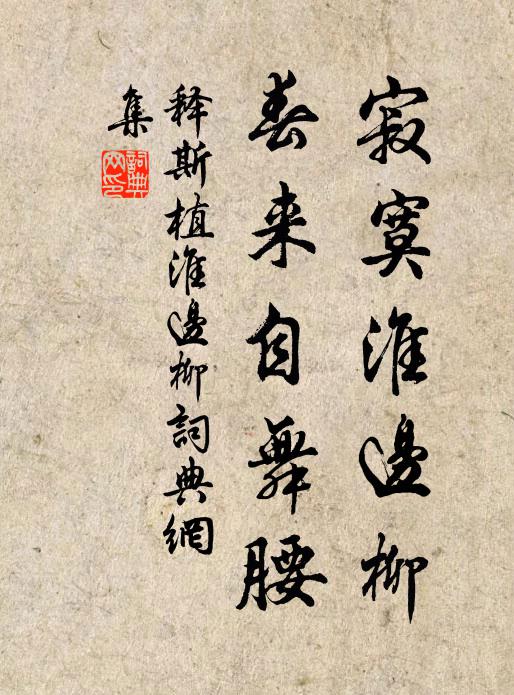 寂寞淮邊柳
春来自舞腰
释斯植淮邊柳詞典網
集
詞典
网印